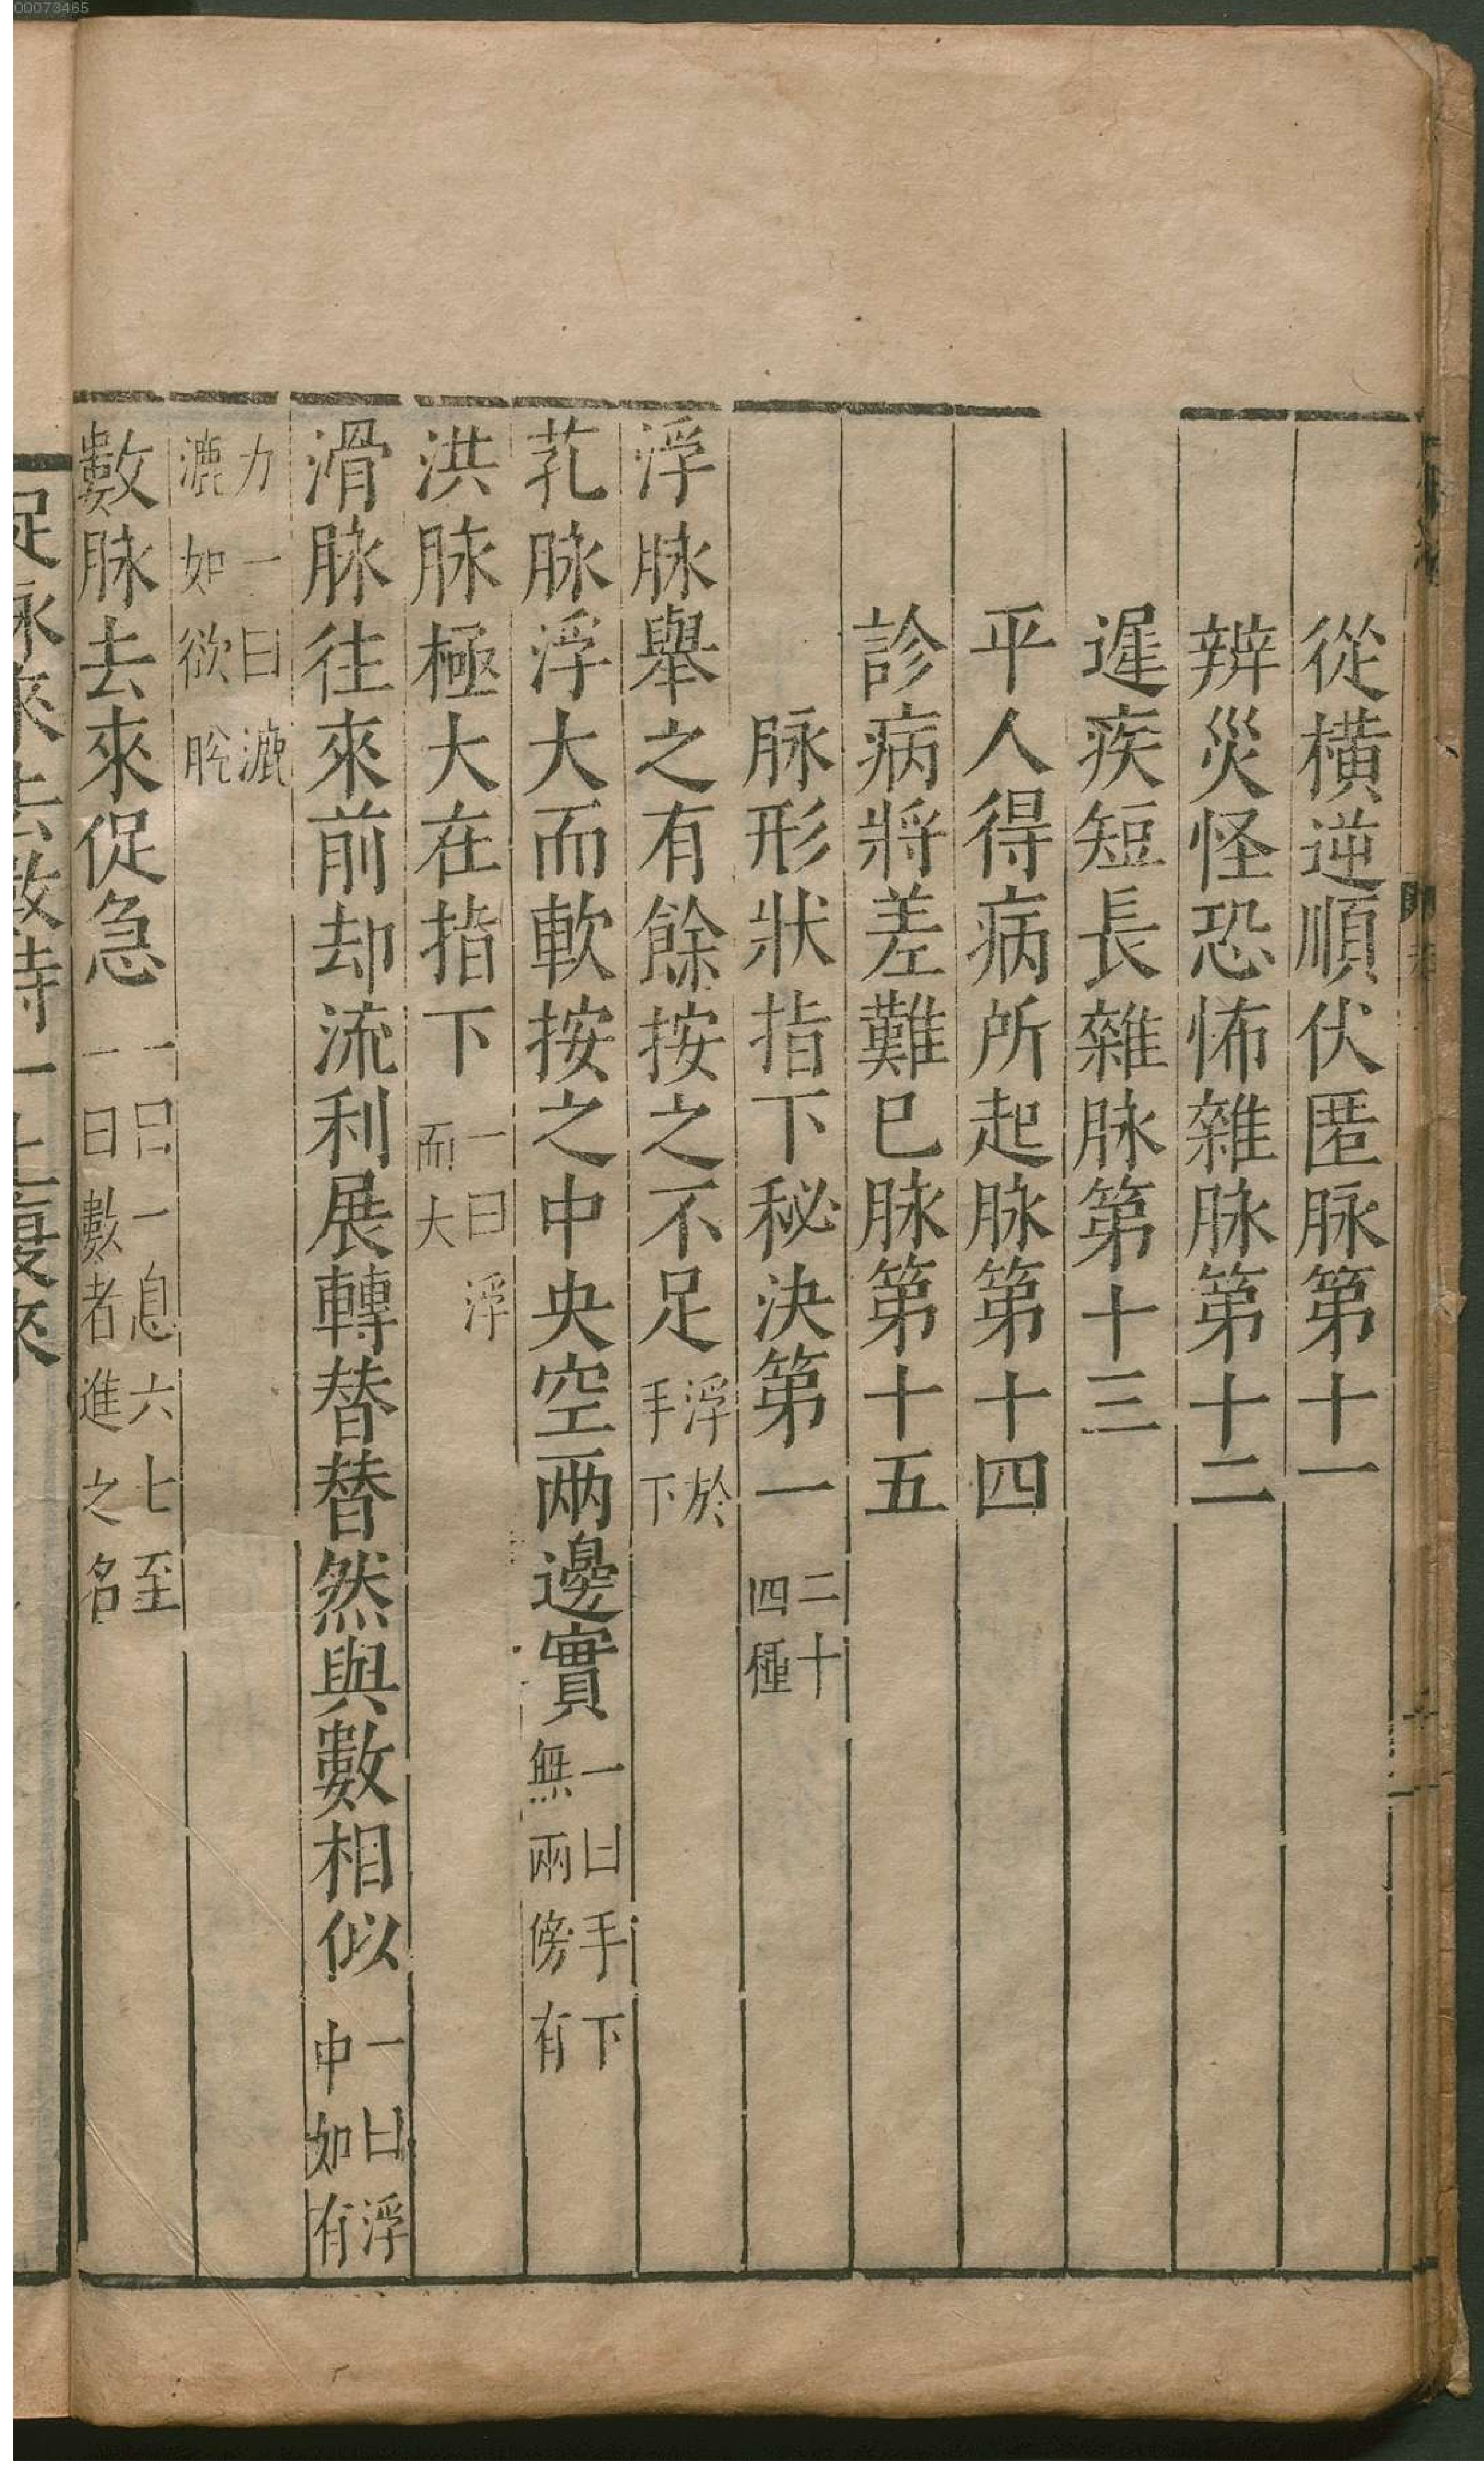 00073465
從橫逆順伏匿脉第十一
辨災怪恐怖雜脉第十二
遲疾短長雜脉第十三
平人得病所起脉第十四
診病將差難巳脉第十五
脉形狀指下秘決第一 二十四種
浮脉舉之有餘按之不足 浮於手下
芤脉浮大而軟按之中央空兩邊實 一曰手下無兩傍有
洪脉極大在指下 一曰浮而大
滑脉往來前却流利展轉替替然與數相似 一曰浮中如有
力一曰漉漉如欲脫
數脉去來促急 一曰一息六七至一曰數者進之名
促脉來去數時一止復來